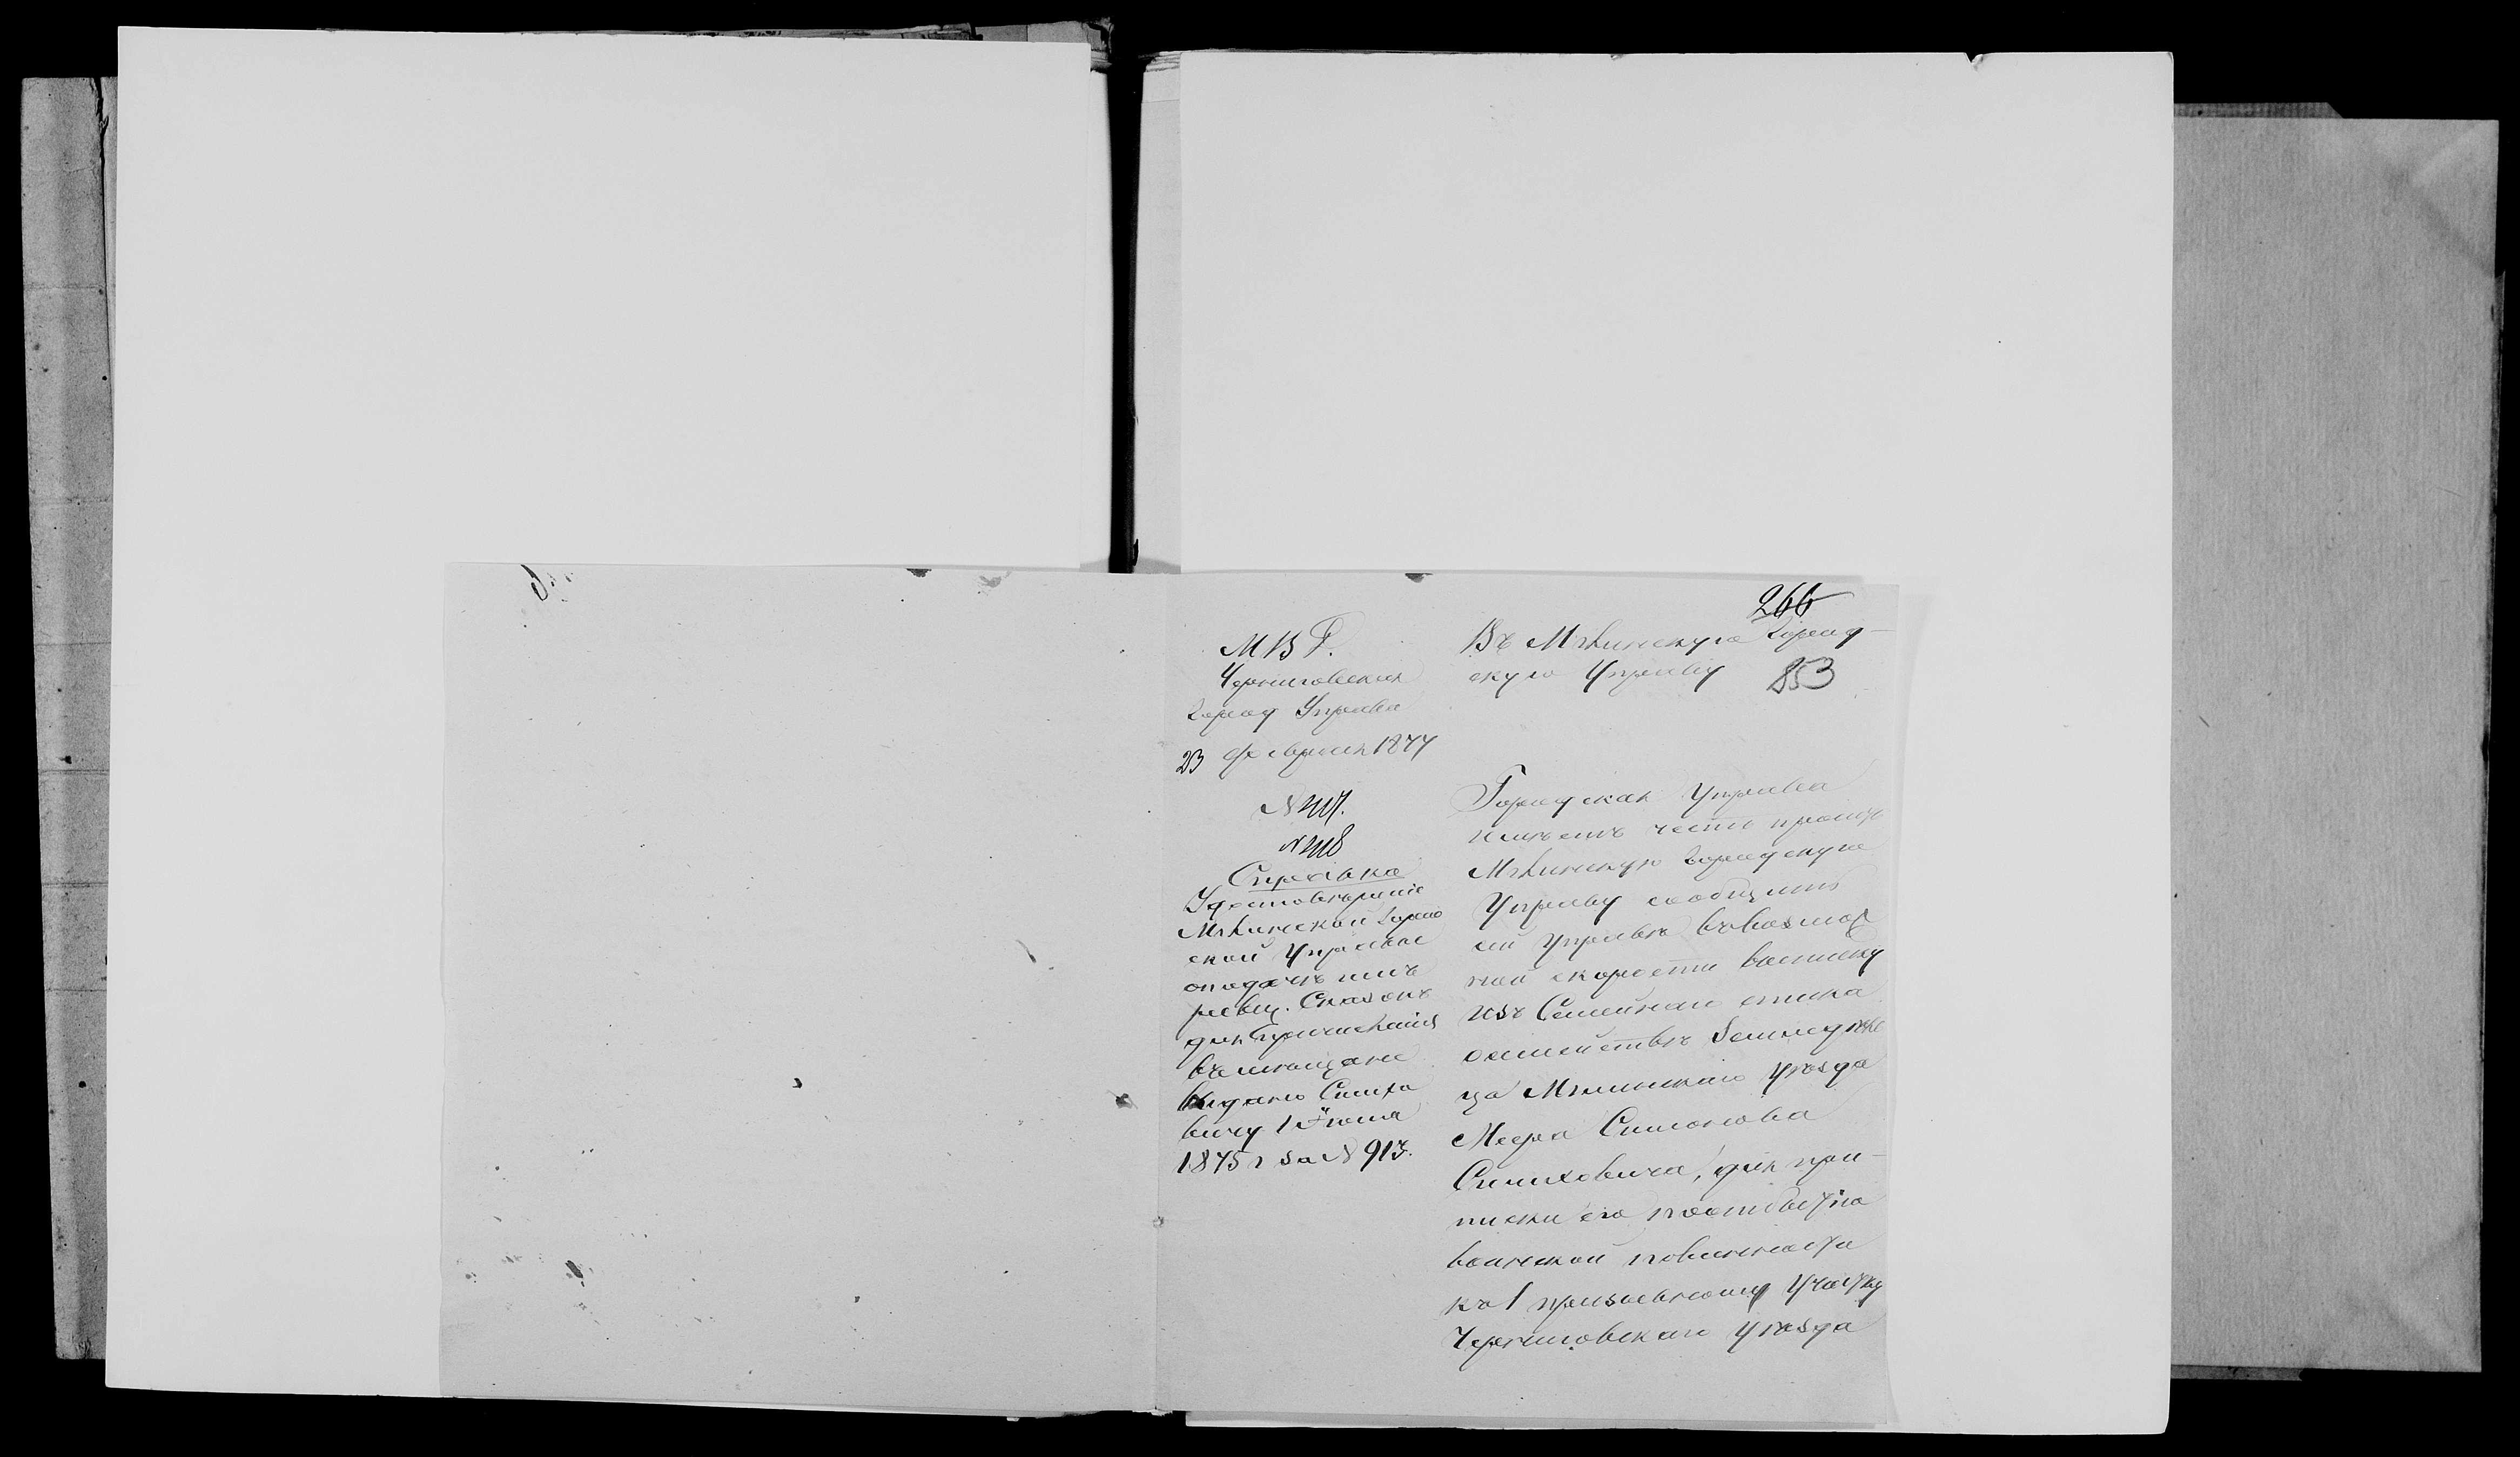 266
М В Д.
Черниговская
Город Управа
23 февраля 1877
№
№
Справка
Удостовѣреніе
Мглинской Город
ской Управы
о подачѣ имъ
ревиз. Сказокъ
для причисленія
въ мещане
выдано Симхо
вичу 1 Июня
1875 г за № 913.
Въ Мглинскую Город-
скую Управу 853
Городская Управа
имѣетъ честь просить
Мглинскую Городскую
Управу сообщить
сей Управѣ въ возмож
ной скорости выписку
изъ Семейнаго списка
о семействѣ Земледѣль
ца Мглинскаго уѣзда
Меера Симонова
Симховича, для при-
писки его по отбытію
воинской повинности
къ 1 призывному участку
Черниговскаго уѣзда